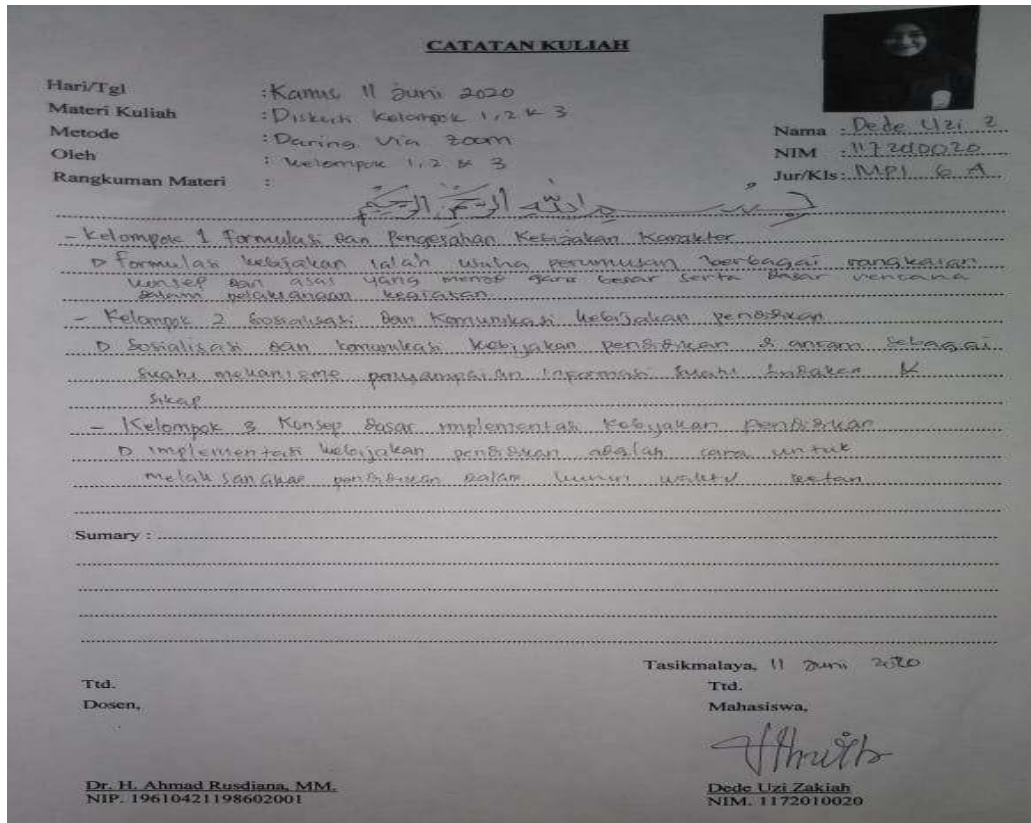 CATATAN KULIAH
Hari/Tgl : Kamis 11 Juni 2020
Materi Kuliah : Diskusi Kelompok 1, 2 & 3
Metode : Daring Via zoom
Oleh : Kelompok 1, 2 & 3
Rangkuman Materi :
Nama : Dede Uzi Z
NIM : 1172010020
Jur/Kls : MPI 6 A
بسم الله الرحمن الرحيم
- Kelompok 1 Formulasi dan Pengesahan Kebijakan Karakter
Formulasi kebijakan ialah usaha perumusan berbagai rangkaian
konsep dan asas yang menjadi garis besar serta dasar rencana
dalam pelaksanaan kegiatan
- Kelompok 2 Sosialisasi dan Komunikasi kebijakan pendidikan
Sosialisasi dan komunikasi kebijakan pendidikan sebagai
suatu mekanisme penyampaian informasi suatu tindakan &
sikap
- Kelompok 3 Konsep dasar implementasi Kebijakan Pendidikan
implementasi kebijakan pendidikan adalah cara untuk
pendidikan dalam kurun waktu
Sumary :
Tasikmalaya, 11 Juni 2020
Ttd.
Dosen,
Ttd.
Mahasiswa,
Dr. H. Ahmad Rusdiana, MM.
NIP. 19610421198602001
Dede Uzi Zakiah
NIM. 1172010020